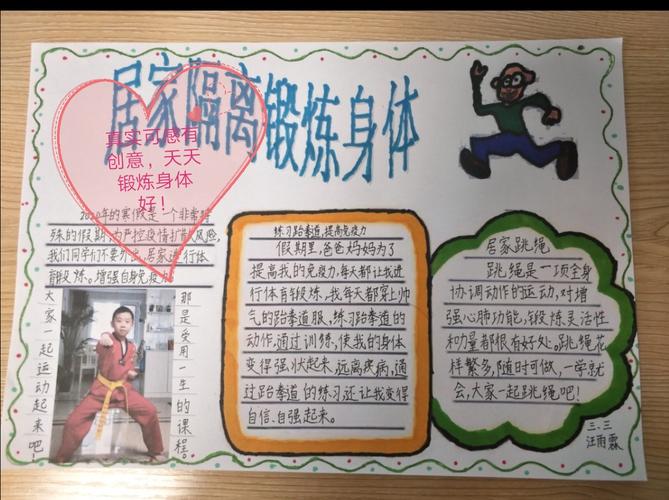 居家隔离锻炼身体
真实可感有
创意，天天
锻炼身体
好！
2020年的寒假是一个非常特
殊的假期，为严控疫情扩散风险，
我们同学们不要外出，居家进行体
育锻炼。增强自身免疫力
大家一起运动起来吧！
那是受用一生的课程。
练习跆拳道，提高免疫力
假期里，爸爸妈妈为了
提高我的免疫力，每天都让我进
行体育锻炼，我每天都穿上帅
气的跆拳道服，练习跆拳道的
动作，通过训练，使我的身体
变得强状起来，远离疾病，通
过跆拳道的练习还让我变得
自信、自强起来。
居家跳绳
跳绳是一项全身
协调动作的运动，对增
强心肺功能，锻炼灵活性
和力量都很有好处。跳绳花
样繁多，随时可做，一学就
会，大家一起跳绳吧！
三、三
汪雨霖